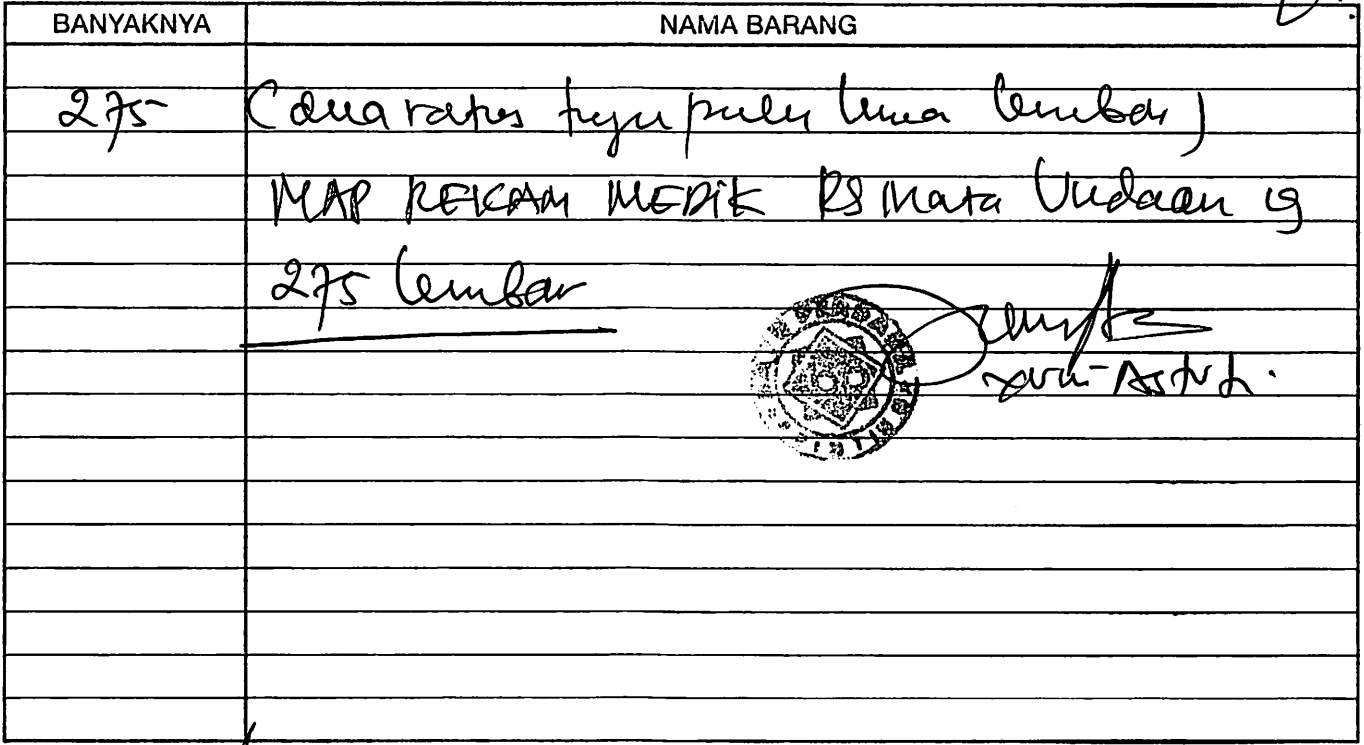 BANYAKNYA NAMA BARANG
275 (dua ratus tuju pulu lima lembar)
MAP REKAM MEDIK RS Mata Undaan
275 lembar
Astuti.